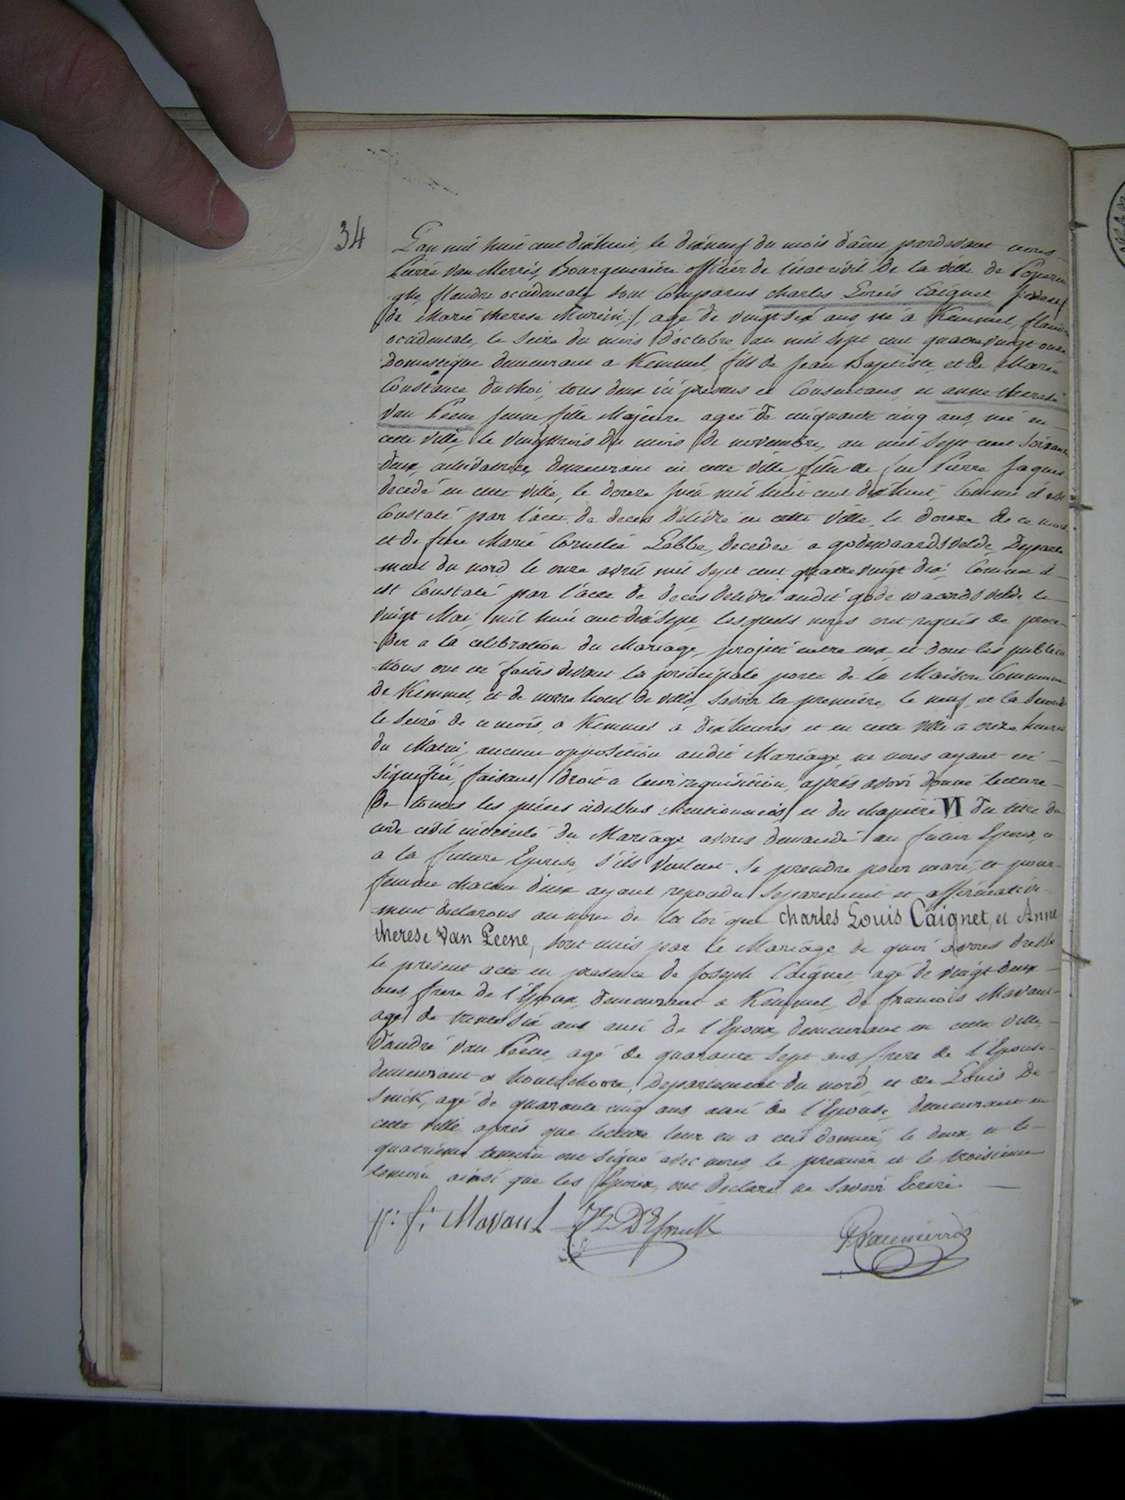 34
L'an mil huit cent dixhuit, le dixneuf du mois d'août pardevant nous
Pierre Van Merris Bourguemaître officier de l'état civil de la ville de Poperin
ghe, flandre occidentale sont comparus charles Louis Caignet
de Marie therese Murein, agé de vingt six ans né à Kemmel, flandre
occidentale, le seize du mois d'octobre, an mil sept cent quatre vingt onze
Domestique demeurant a Kemmel, fils de Jean Baptiste, et de Marie
Constance Duthoi, tous deux ici présens et Consentans, et anne therese
Van Peene jeune fille Majeure agée de cinquante cinq ans, née en
cette ville, le vingt trois du mois de novembre, an mil sept cent soixante
deux, demeurant en cette ville, fille de feu Pierre Jaques
decedé en cette ville, le douze mil huit cent dixhuit, comme il est
Constaté par l'acte de decès delivré en cette ville, le douze de ce mois
et de feue Marie Cornelie Labbe, decedée a godewaardsvelde, Departe
ment du nord le onze avril mil sept cent quatre vingt dix, Comme il
est Constaté par l'acte de decès delivré audit godewaardsvelde le
vingt Mai, mil huit cent dixsept, lesquels nous ont requis de proce
der a la celebration du Mariage, projeté entre eux, et dont les publica
tions ont été faites devant la principale porte de la Maison Commune
de Kemmel, et de notre hotel de ville, savoir la première, le neuf, et la seconde
le seize de ce mois, a Kemmel a dix heures et en cette ville a onze heures
du Matin, aucune opposition audit Mariage, ne nous ayant été
signifiée, faisant droit a leur requisition, après avoir donné lecture
de toutes les pièces ci dessus Mentionnées, et du chapitre VI du titre du
code civil intitulé du Mariage, avons demandé au futur Epoux, et
a la future Epouse, s'ils veulent se prendre pour mari, et pour
femme chacun d'eux ayant repondu separement et affirmative
ment declarons au nom de la loi que charles Louis Caignet, et Anne
therese Van Peene, sont unis par le Mariage de quoi avons dressé
le present acte en presence de Joseph Caignet, agé de vingt deux
ans, frere de l'Epoux, demeurant a Kemmel, de francois Mavaut
agé de trente six ans ami de l'Epoux, demeurant en cette ville,
d'andré Van Peene, agé de quarante sept ans, frere de l'Epouse
demeurant a hontschoote, Departement du nord, et de Louis De
snick, agé de quarante cinq ans ami de l'Epouse, demeurant en
cette ville après que lecture leur en a été donnée, le deux, et le
quatrieme temoin ont signé avec nous, le premier et le troisieme
temoin ainsi que les Epoux, ont declaré ne savoir Ecrire.
p: f: Mavaut